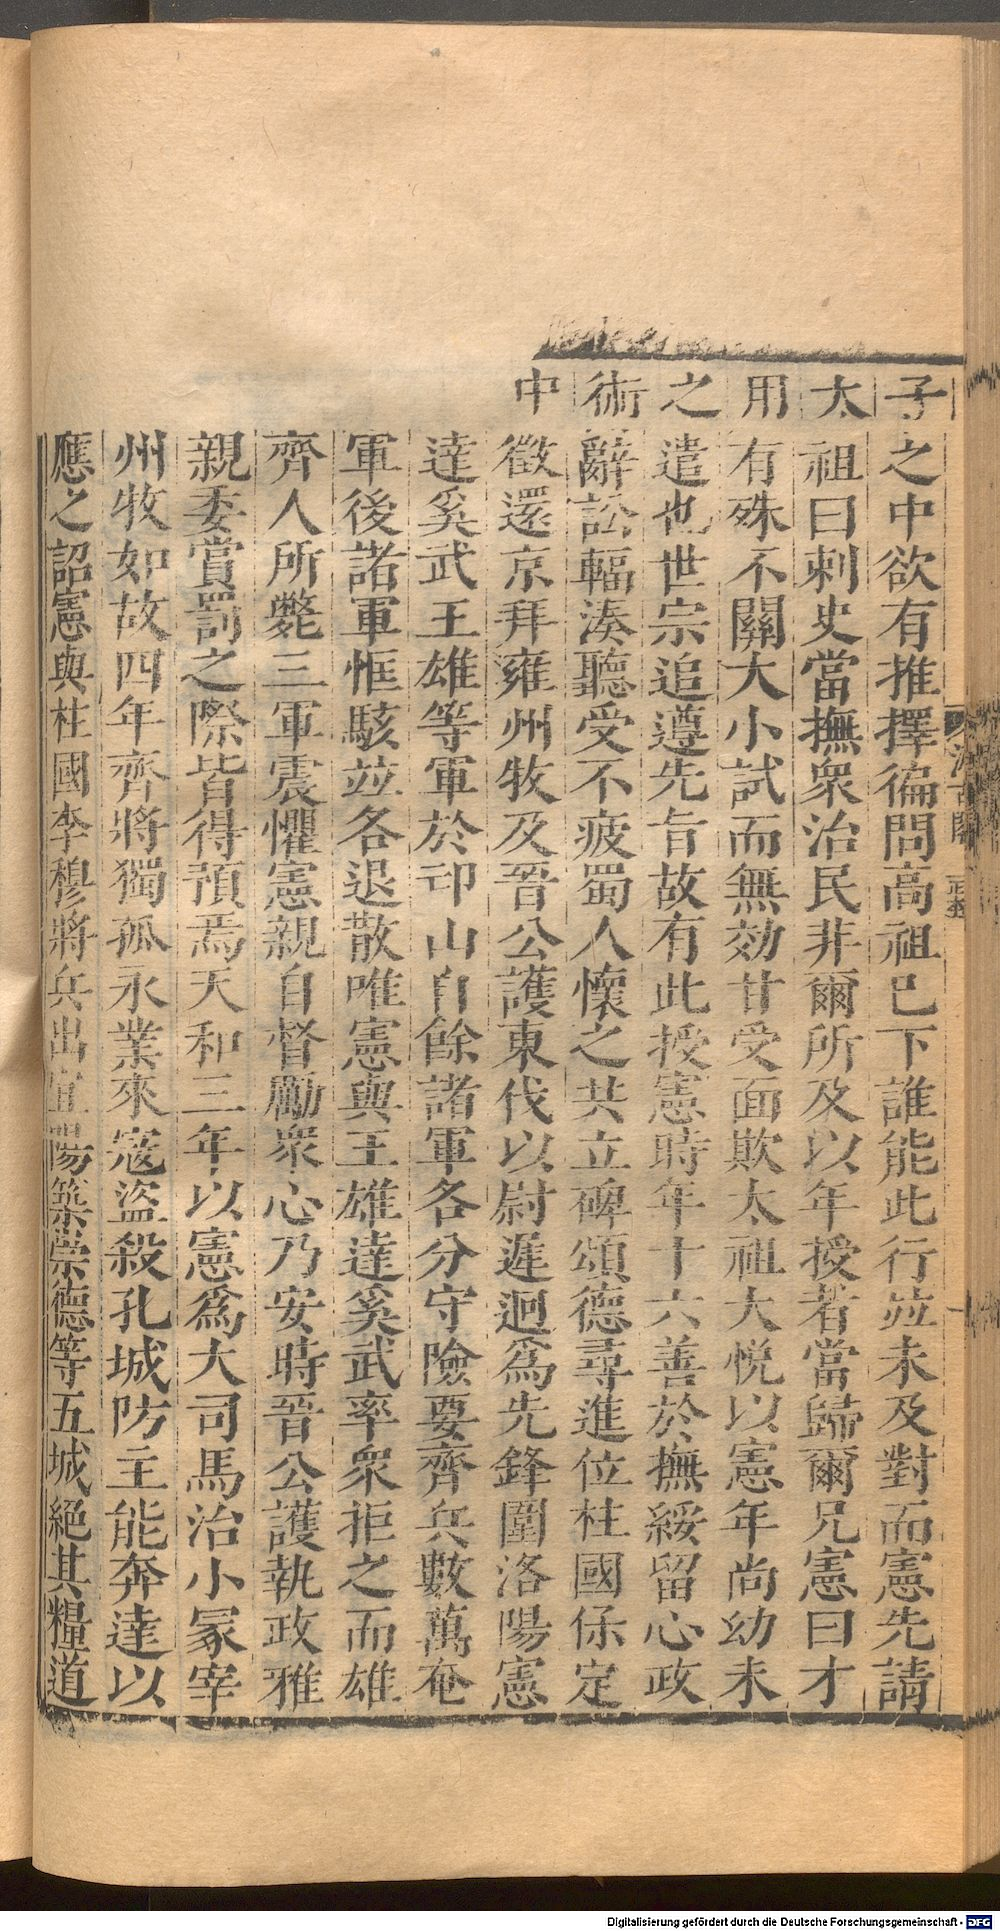 子之中欲有推擇徧問高祖已下誰能此行竝未及對而憲先請
太祖曰刺史當撫衆治民非爾所及以年授者當歸爾兄憲曰才
用有殊不關大小試而無効甘受面欺太祖大悅以憲年尚幼未
之遣也世宗追遵先旨故有此授憲時年十六善於撫綏留心政
術辭訟輻湊聽受不疲蜀人懷之共立碑頌德尋進位柱國保定
中徵還京拜雍州牧及晉公護東伐以尉遲迥爲先鋒圍洛陽憲
達奚武王雄等軍於邙山自餘諸軍各分守險要齊兵數萬奄
軍後諸軍恇駭竝各退散唯憲與王雄達奚武率衆拒之而雄
齊人所斃三軍震懼憲親自督勵衆心乃安時晉公護執政雅
親委賞罰之際皆得預焉天和三年以憲爲大司馬治小冢宰
州牧如故四年齊將獨孤永業來寇盜殺孔城防主能奔達以
應之詔憲與柱國李穆將兵出宜陽築崇德等五城絕其糧道
汲古閣
Digitalisierung gefördert durch die Deutsche Forschungsgemeinschaft - DFG